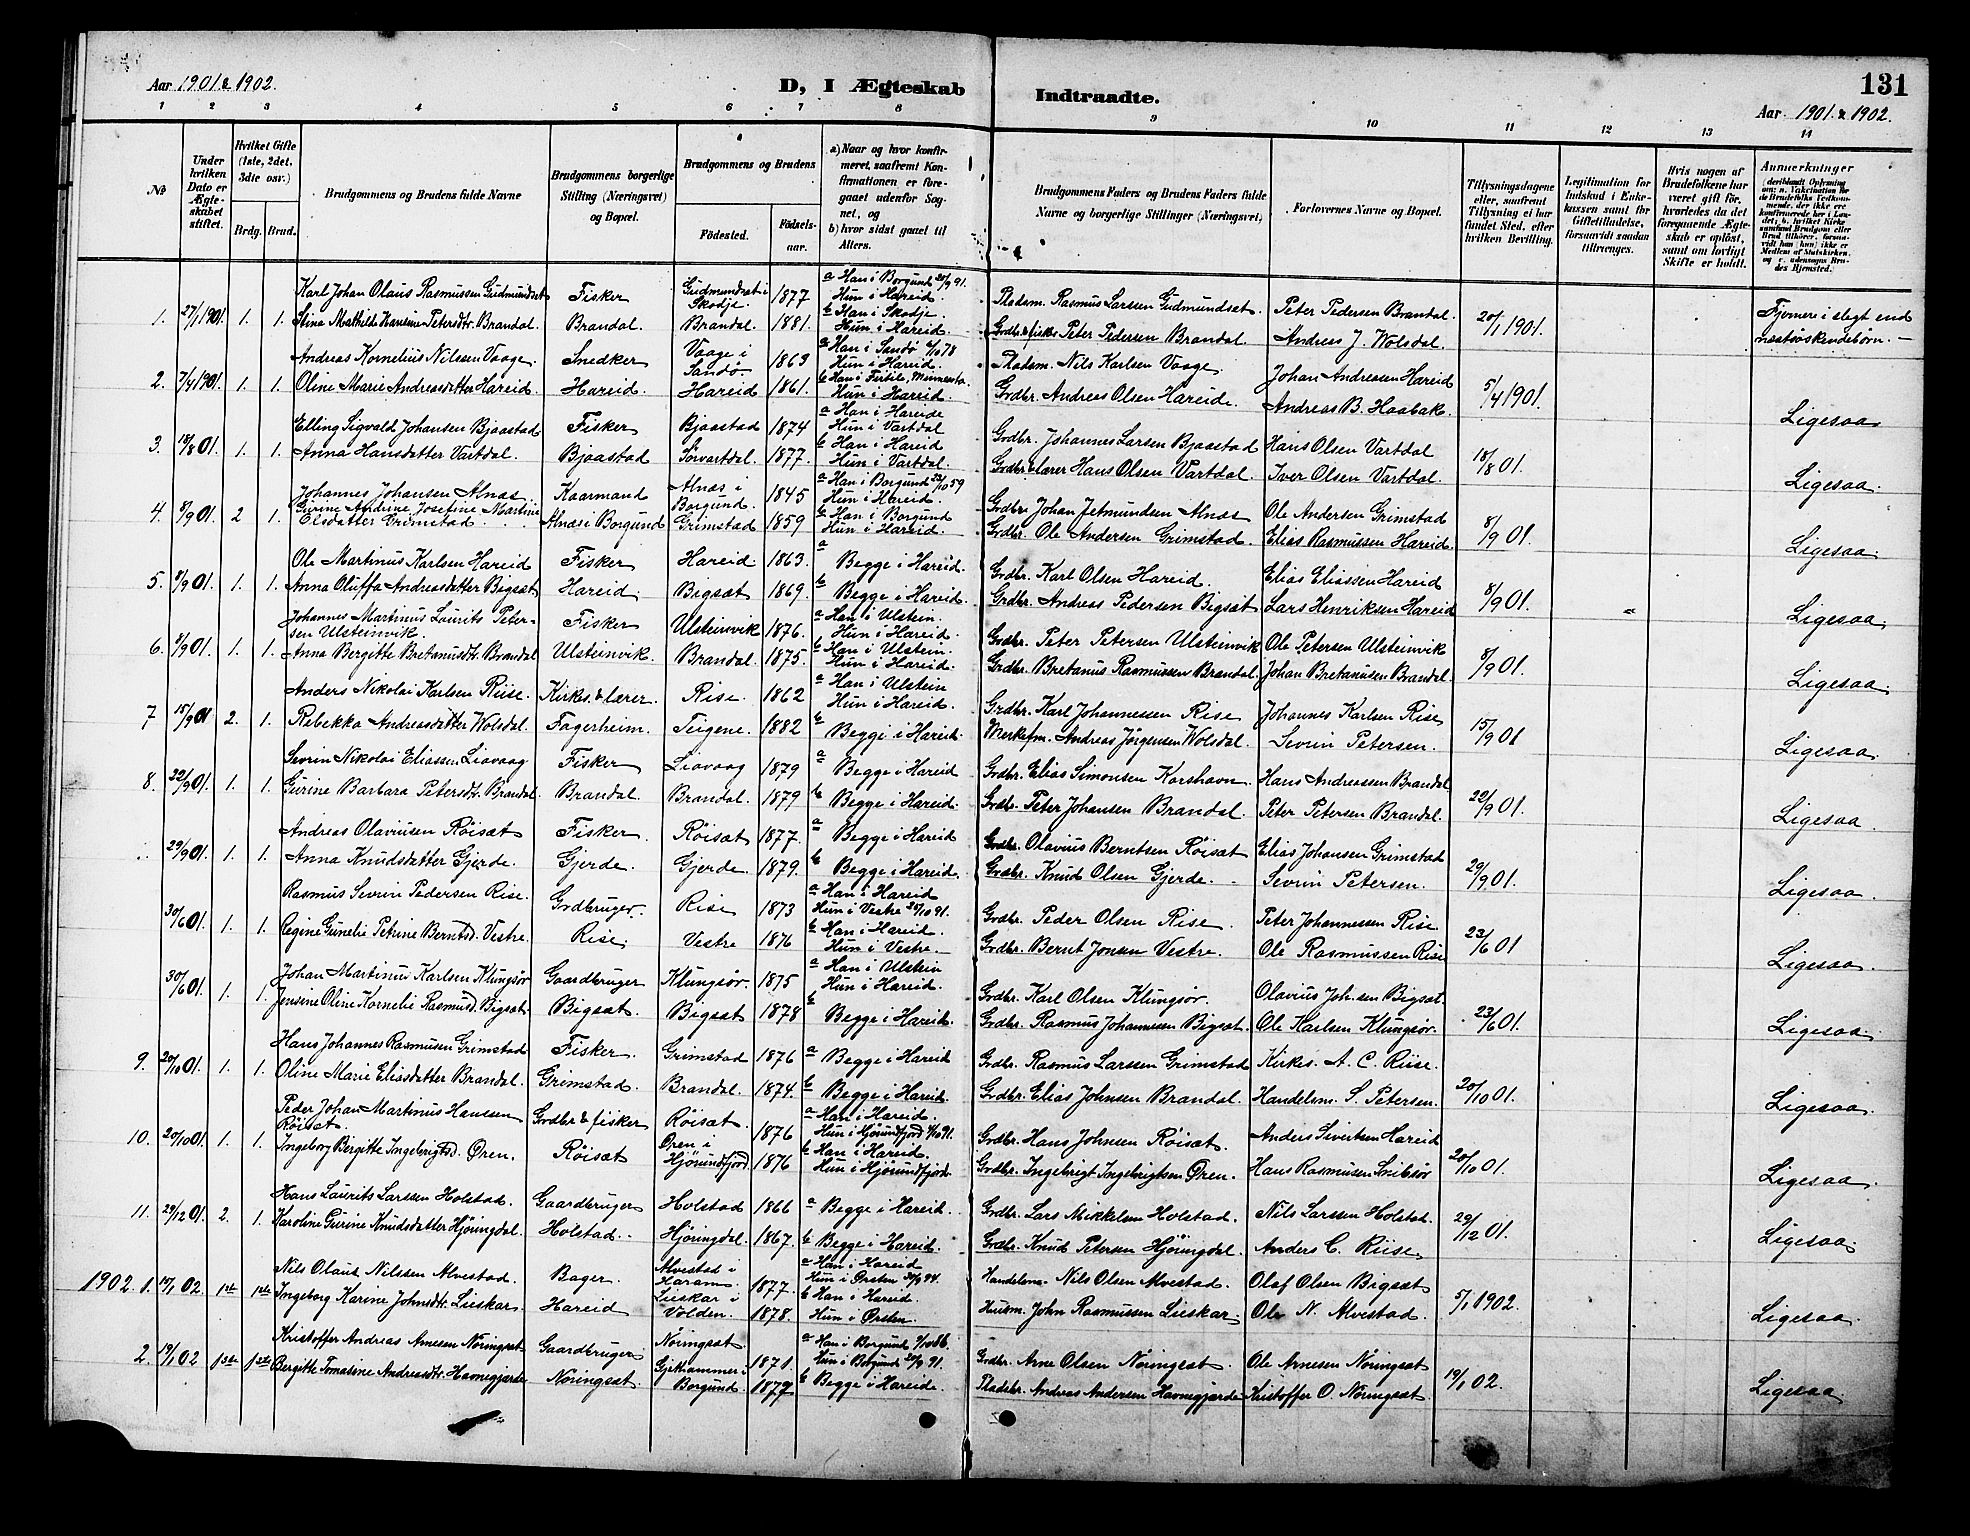 Aar 1901 & 1902.
D, I Ægteskab Indtraadte.
131
Aar 1901 & 1902.
1 2 3 4 5 6 7 8 9 10 11 12 13 14
No
Under hvilken Dato er Ægteskabet stiftet.
Hvilket Gifte (1ste, 2det, 3die osv.)
Brdg. Brud.
Brudgommens og Brudens fulde Navne
Brudgommens borgerlige Stilling (Næringsvei) og Bopæl.
Brudgommens og Brudens
Fødested.
Fødsels-aar.
a) Naar og hvor konfirmeret, saafremt Konfirmationen er foregaaet udenfor Sognet, og
b) hvor sidst gaaet til Alters.
Brudgommens Faders og Brudens Faders fulde Navne og borgerlige Stillinger (Næringsvei)
Forlovernes Navne og Bopæl.
Tillysningsdagene eller, saafremt Tillysning ei har fundet Sted, efter hvilken Bevilling.
Legitimation for Indskud i Enkekassen samt for Giftetilladelse, forsaavidt saadan tiltrænges.
Hvis nogen af Brudefolkene har været gift før, hvorledes da det foregaaende Ægteskab er opløst, samt om lovligt Skifte er holdt.
Anmærkninger
Karl Johan Olaus Rasmussen Gudmundset Fisker Gudmundset i Skodje. 1877 a Han i Borgund 20/9 91. Hun i Hareid. Pladsm. Rasmus Larssen Gudmundset. Peter Pedersen Brandal.
1. 27/1 1901. 1. 1. Stina Mathilde Hansine Petersdtr. Brandal. Brandal. Brandal. 1881. b Han i Skodje. Hun i Hareid. Grdbr. & fisker Peter Pedersen Brandal. Andreas J. Wolsdal. 20/1 1901. Fjernere i slegt end næstsøskendebørn. —
Andreas Kornelius Nilssen Vaage. Snedker Vaage i Sandø. 1863 a Han i Sandø 6/10 78 Hun i Hareid. Pladsm. Nils Karlsen Vaage. Johan Andreasen Hareid
2. 7/4 1901. 1. 1. Oline Marie Andreasdatter Hareid. Hareid. Hareid 1861. b Han i Fertile, Minnesota. Hun i Hareid. Grdbr. Andreas Olsen Hareide. Andreas B. Haabak. 5/4 1901. Ligesaa
Elling Sigvald Johansen Bjaastad Fisker Bjaastad 1874 a Han i Hareide Hun i Vartdal Grdbr. Johannes Larsen Bjaastad Hans Olsen Vartdal
3. 18/8 01. 1. 1. Anna Hansdatter Vartdal. Bjaastad Sørvartdal. 1877. b Han i Hareid Hun i Vartdal. Grdbr. & lærer Hans Olsen Vartdal. Iver Olsen Vartdal. 18/8 01. Ligesaa.
Johannes Johansen Alnæs Kaarmand Alnæs i Borgund. 1845 a Han i Borgund 23/10 59 Hun i Hareid. Grdbr. Johan Jetmundsen Alnæs Ole Andersen Grimstad
4. 8/9 01. 2 1. Gurine Andrine Josefine Martine Elsdatter Grimstad. Alnæs i Borgund Grimstad 1859 b Han i Borgund Hun i Hareid. Grdbr. Ole Andersen Grimstad. Elias Rasmussen Hareid. 8/9 01. Ligesaa.
Ole Martinus Karlsen Hareid Fisker Hareid. 1863. a Begge i Hareid. Grdbr. Karl Olsen Hareid. Elias Eliassen Hareid
5. 8/9 01. 1. 1. Anna Oluffa Andreasdatter Bigsæt Hareid. Bigsæt 1869. b Begge i Hareid. Grdbr. Andreas Pedersen Bigsæt Lars Henriksen Hareid 8/9 01. Ligesaa.
Johannes Martinus Laurits Petersen Ulsteinvik. Fisker Ulsteinvik 1876. a Han i Ulstein. Hun i Hareid. Grdbr. Peter Petersen Ulsteinvik Ole Petersen Ulsteinvik
6. 8/9 01. 1. 1. Anna Bergitte Bretanusdtr. Brandal Ulsteinvik. Brandal. 1875. b Han i Ulstein. Hun i Hareid. Grdbr. Bretanus Rasmussen Brandal. Johan Bretanusen Brandal 8/9 01. Ligesaa.
Anders Nikolai Karlsen Riise. Kirkes. & lærer. Rise. 1862 a Han i Ulstein Hun i Hareid. Grdbr. Karl Johannessen Rise Johannes Karlsen Rise
7 15/9 01 2. 1. Rebekka Andreasdatter Wolsdal. Fagerheim. Teigene. 1882 b Begge i Hareid. Merkefm. Andreas Jørgensen Wolsdal. Sevrin Petersen. 15/9 01 Ligesaa.
Sevrin Nikolai Eliassen Liavaag Fisker. Liavaag 1879 a Begge i Hareid Grdbr. Elias Simonsen Korshavn. Hans Andreassen Brandal
8. 22/9 01. 1. 1. Gurine Barbara Petersdtr. Brandal. Brandal. Brandal. 1879 b Begge i Hareid. Grdbr. Peter Johansen Brandal. Peter Petersen Brandal. 22/9 01. Ligesaa.
Andreas Olaviusen Røisæt Fisker. Røisæt 1877. a Begge i Hareid Grdbr. Olavius Berntsen Røisæt Elias Johansen Grimstad
29/9 01. 1. 1. Anna Knudsdatter Gjerde. Gjerde. Gjerde. 1879. b Begge i Hareid. Grdbr. Knud Olsen Gjerde. Sevrin Petersen. 29/9 01. Ligesaa.
Rasmus Sevrin Pedersen Rise. Grdbruger. Rise 1873 a Han i Hareid Hun i Vestre 20/10 91. Grdbr. Peder Olsen Rise. Peter Johannessen Rise
30/6 01. 1. 1. Regine Gunelie Petrine Berntsd. Vestre. Rise. Vestre 1876 b Han i Hareid. Hun i Vestre. Grdbr. Bernt Jonsen Vestre. Ole Rasmussen Rise 23/6 01 Ligesaa.
Johan Martinus Karlsen Klungsør Gaardbruger Klungsør. 1875 a Han i Ulstein Hun i Hareid. Grdbr. Karl Olsen Klungsør. Olavius Joh.sen Bigsæt.
30/6 01. 1. 1. Jensine Oline Kornelie Rasmusd. Bigsæt. Bigsæt. Bigsæt 1878 b Begge i Hareid. Grdbr. Rasmus Johannessen Bigsæt. Ole Karlsen Klungsør. 23/6 01. Ligesaa.
Hans Johannes Rasmusen Grimstad Fisker. Grimstad 1876 a Begge i Hareid Grdbr. Rasmus Larssen Grimstad Kirkes. A. C. Riise.
9. 20/10 01. 1. 1. Oline Marie Eliasdatter Brandal. Grimstad. Brandal. 1874. b Begge i Hareid. Grdbr. Elias Johnsen Brandal. Handelsm. S. Petersen. 20/10 01. Ligesaa.
Peder Johan Martinus Hanssen Røisæt. Grdbr & fisker Røisæt. 1876 a Han i Hareid. Hun i Hjørundfjord 4/10 91. Grdbr. Hans Johnsen Røisæt. Anders Sivertsen Hareid
10. 20/10 01. 1. 1. Ingeborg Bergitte Ingebrigtsd. Øren. Røisæt Øren i Hjørundfjord 1876 b Han i Hareid. Hun i Hjørundfjord. Grdbr. Ingebrigt Ingebrigtsen Øren. Hans Rasmusen Snibsør 20/10 01. Ligesaa.
Hans Laurits Larssen Holstad. Gaardbruger Holstad 1866 a Begge i Hareid. Grdbr. Lars Mikkelsen Holstad. Nils Larssen Holstad.
11. 29/12 01. 2. 1. Karoline Gurine Knudsdatter Hjøringdal. Holstad. Hjøringdal. 1867. b Begge i Hareid. Grdbr. Knud Petersen Hjøringdal. Anders C. Riise. 29/12 01. Ligesaa.
Nils Olaus Nilssen Alvestad. Bager. Alvestad i Haram. 1877. a Han i Hareid Hun i Ørsten 30/9 94. Handelsm. Nils Olsen Alvestad. Olaf Olsen Bigsæt
1902. 1. 12/1 02 1ste 1ste Ingeborg Karine Johnsdtr. Lieskar. Hareid Lieskar i Volden. 1878. b Han i Hareid. Hun i Ørsten. Husm. John Rasmussen Lieskar. Ole N. Alvestad. 5/1 1902. Ligesaa.
Kristoffer Andreas Arnesen Nøringsæt Gaardbruger Nøringsæt 1871. a Han i Borgund 3/10 86. Hun i Borgund 20/9 91. Grdbr. Arne Olsen Nøringsæt. Ole Arnesen Nøringsæt
2. 19/1 02 1ste 1ste Bergitte Tomasine Andreasdtr. Havnegjærde Nøringsæt. Gjethammer i Borgund 1877 b Begge i Hareide. Pladsbr. Andreas Andersen Havnegjærde Kristoffer O. Nøringsæt. 19/1 02. Ligesaa.